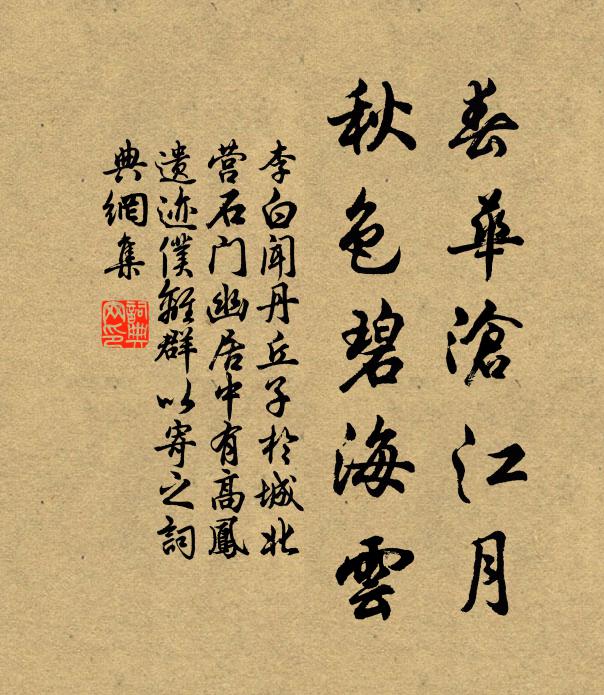 春華滄江月
秋色碧海雲
李白闻丹丘子於城北
营石门幽居中有高鳳
遗迹僕離群以寄之詞
典網集
詞典
网印